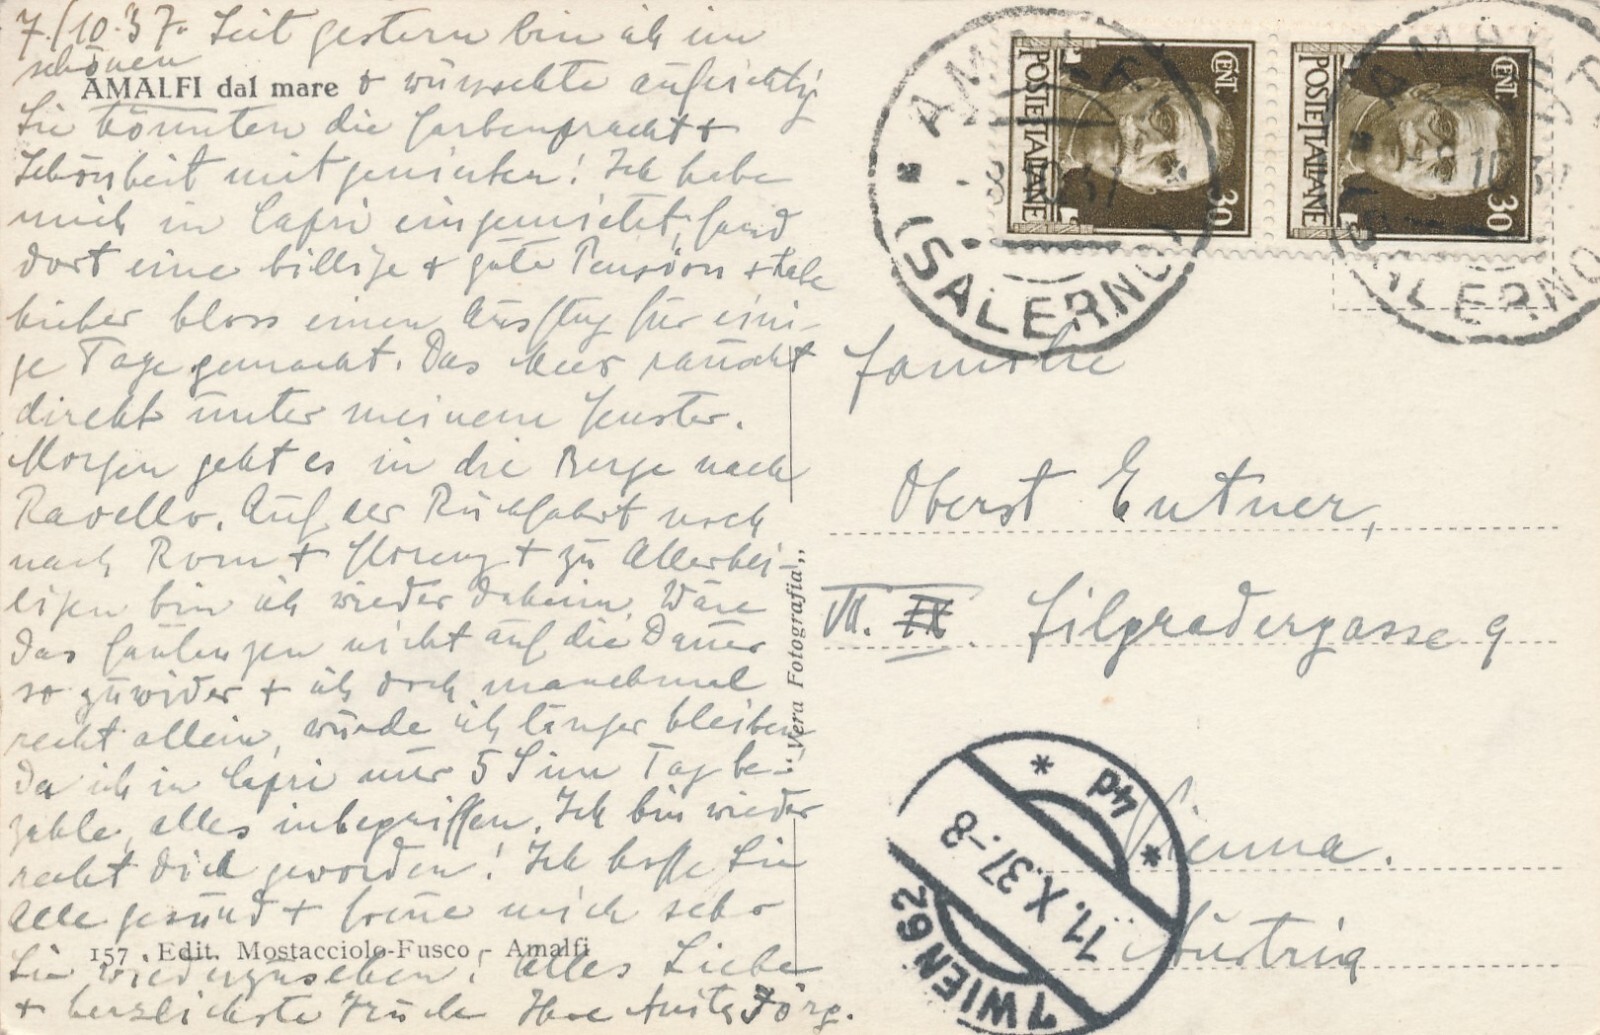 7./10.37. Seit gestern bin ich im
schönen
AMALFI dal mare
+ wünschte aufrichtig
Sie könnten die Farbenpracht +
Schönheit mitgeniessen! Ich habe
mich in Capri eingemietet, fand
dort eine billige + gute Pension + habe
hieher bloss einen Ausflug für eini-
ge Tage gemacht. Das Meer rauscht
direkt unter meinem Fenster.
Morgen geht es in die Berge nach
Ravello. Auf der Rückfahrt noch
nach Rom + Florenz + zu Allerhei-
ligen bin ich wieder daheim. Wäre
das Faulenzen nicht auf die Dauer
so zuwider + ich doch manchmal
recht allein, würde ich länger bleiben
da ich in Capri nur 5 Tag be-
zahle, alles inbegriffen. Ich bin wieder
recht dick geworden! Ich hoffe Sie
alle gesund + freue mich sehr
157 . Edit. Mostacciolo-Fusco - Amalfi
Sie wiederzusehen! Alles Liebe
+ herzlichste Ihre Anita Jörg.
"Vera Fotografia"
POSTE ITALIANE
CENT. 30
POSTE ITALIANE
CENT. 30
AMALFI
(SALERNO)
AMALFI
SALERNO
Familie
Oberst Entner,
VII. IX. Filgradergasse 9
Vienna.
Austria
1 WIEN 62
11.X.37.-8
* 4d *